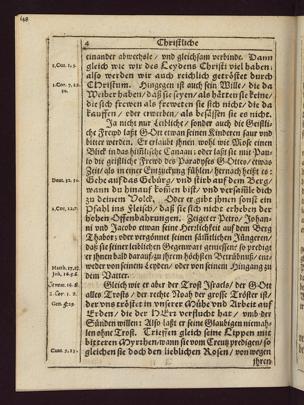 4 Christliche
einander abwechsle / und gleichsam verbinde. Dann
gleich wie wir des Leydens Christi viel haben:
also werden wir auch reichlich getröstet durch
CHristum. Hingegen ist auch sein Wille / die da
Weiber haben / daß sie seyen / als hätten sie keine /
die sich frewen als freweten sie sich nicht / die da
kauffen / oder erwerben / als besässen sie es nicht.
Ja nicht nur leibliche / sondern auch die Geistli-
che Frewd laßt GOtt etwan seinen Kinderen saur und
bitter werden. Er erlaubt ihnen wohl wie Mose einen
Blick in das himmlische Canaan: oder laßt sie mit Pau-
lo die geistliche Frewd des Paradyses GOttes / etwas
Zeit / als in einer Entzückung fühlen / hernach heißt es:
Gehe auf das Gebürg / und stirb auf dem Berg /
wann du hinauf kommen bist / und versamle dich
zu deinem Volck. Oder er gibt ihnen sonst ein
Pfahl ins Fleisch / daß sie sich nicht erheben der
hohen Offenbahrungen. Zeiget er Petro / Johan-
ni und Jacobo etwan seine Herrlichkeit auf dem Berg
Thabor; oder vergünnt seinen sämtlichen Jüngeren /
daß sie seiner lieblichen Gegenwart geniessen: so predigt
er ihnen bald darauf zu ihrem höchsten Betrübnuß / ent-
weder von seinem Leyden / oder von seinem Hingang zu
dem Vatter.
Gleich wie er aber der Trost Israels / der GOtt
alles Trosts / der rechte Noah der grosse Tröster ist /
der uns tröstet in unserer Mühe und Arbeit auf
Erden / die der HErr verflucht hat / umb der
Sünden willen: Also laßt er seine Glaubigen niemah-
len ohne Trost. Trieffen gleich seine Lippen mit
bitteren Myrrhen / wann sie vom Creutz predigen / so
gleichen sie doch den lieblichen Rosen / von wegen
ihren
2. Cor. 1, 5.
1. Cor. 7, 29.
30.
Deut. 32, 50.
2. Cor. 12, 7.
Gen. 5, 29.
Cant. 5, 13.